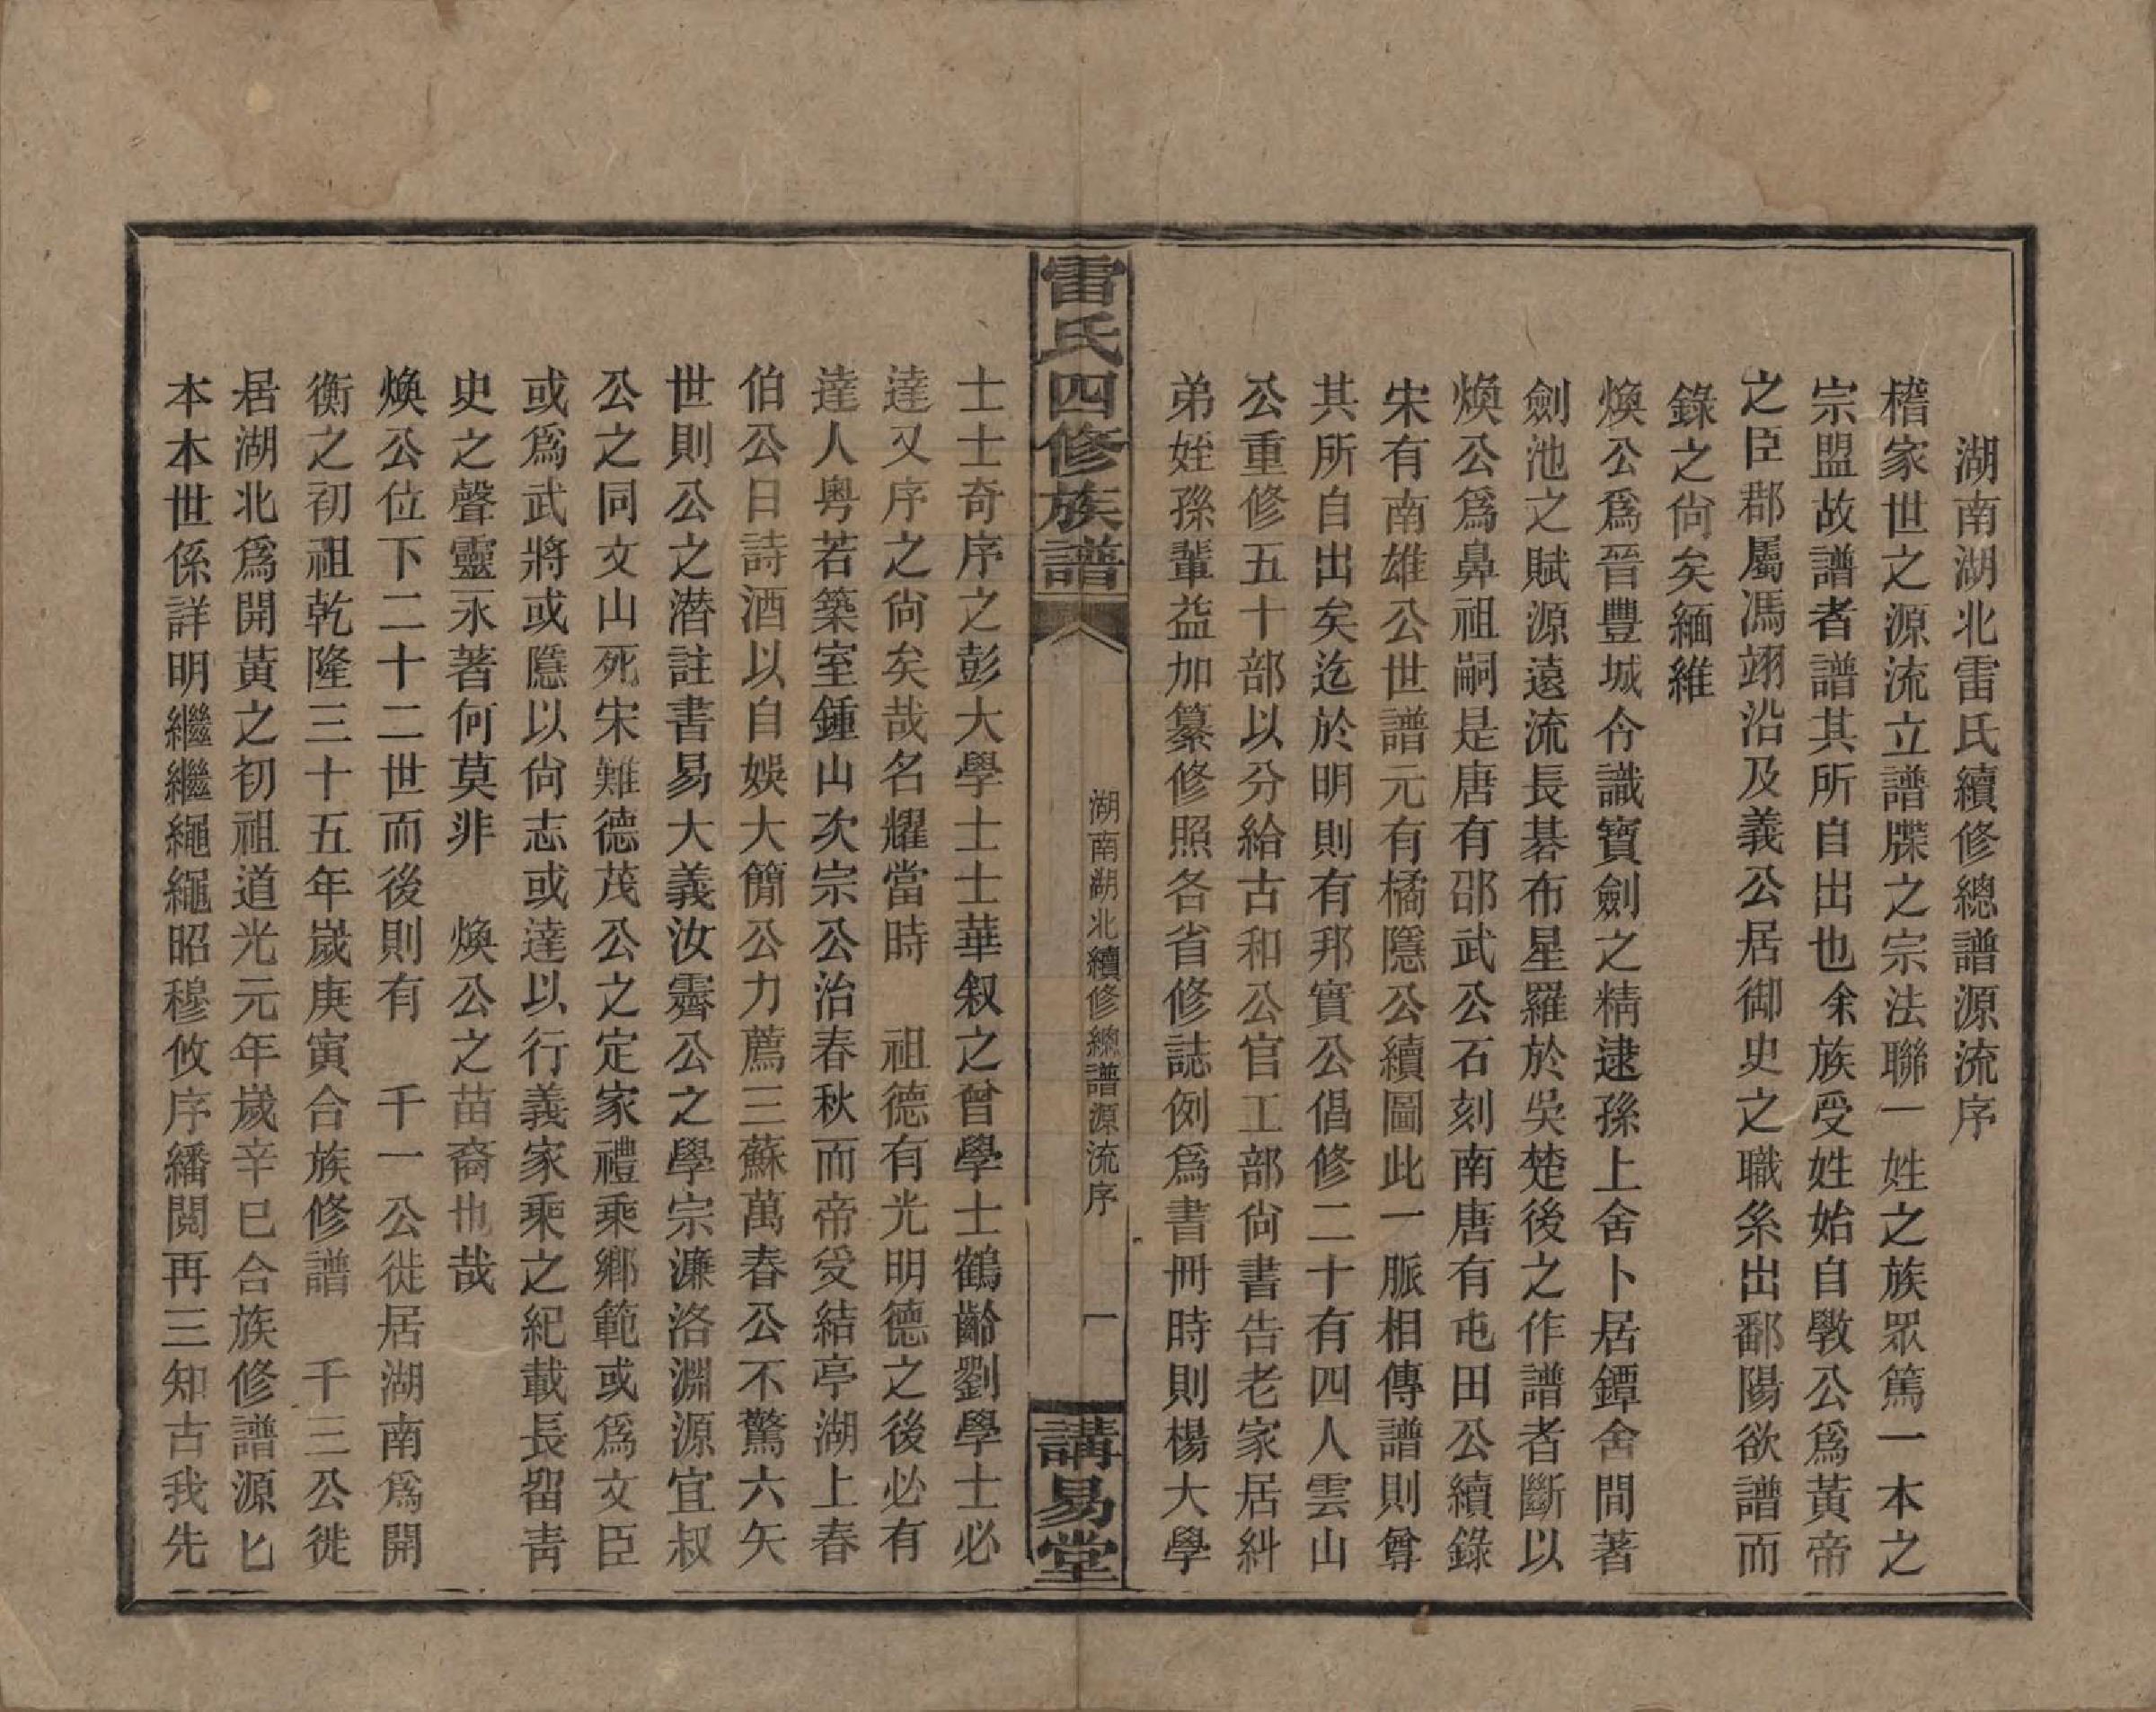 湖南湖北雷氏續修總譜源流序
稽家世之源流立譜牒之宗法聯一姓之族眾篤一本之
宗盟故譜者譜其所自出也余族受姓始自斆公爲黃帝
之臣郡屬馮翊沿及義公居御史之職系出鄱陽欲譜而
錄之尙矣緬維
煥公爲晉豐城令識寶劍之精逮孫上舍卜居鐔舍間著
劍池之賦源遠流長碁布星羅於吳楚後之作譜者斷以
煥公爲鼻祖嗣是唐有邵武公石刻南唐有屯田公續錄
宋有南雄公世譜元有橘隱公續圖此一脈相傳譜則尊
其所自出矣迄於明則有邦實公倡修二十有四人雲山
公重修五十部以分給古和公官工部尙書告老家居糾
弟姪孫輩益加纂修照各省修誌例爲書冊時則楊大學
雷氏四修族譜
湖南湖北續修總譜源流序
一
講易堂
士士奇序之彭大學士士華叙之曾學士鶴齡劉學士必
達又序之尙矣哉名耀當時　祖德有光明德之後必有
達人粤若築室鍾山次宗公治春秋而帝受結亭湖上春
伯公日詩酒以自娛大簡公力薦三蘇萬春公不驚六矢
世則公之潜註書易大義汝霽公之學宗濂洛淵源宜叔
公之同文山死宋難德茂公之定家禮乘鄉範或爲文臣
或爲武將或隱以尙志或達以行義家乘之紀載長留靑
史之聲靈永著何莫非　煥公之苗裔也哉
煥公位下二十二世而後則有　千一公徙居湖南爲開
衡之初祖乾隆三十五年歲庚寅合族修譜　千三公徙
居湖北爲開黃之初祖道光元年歲辛巳合族修譜源匕
本本世係詳明繼繼繩繩昭穆攸序繙閱再三知古我先